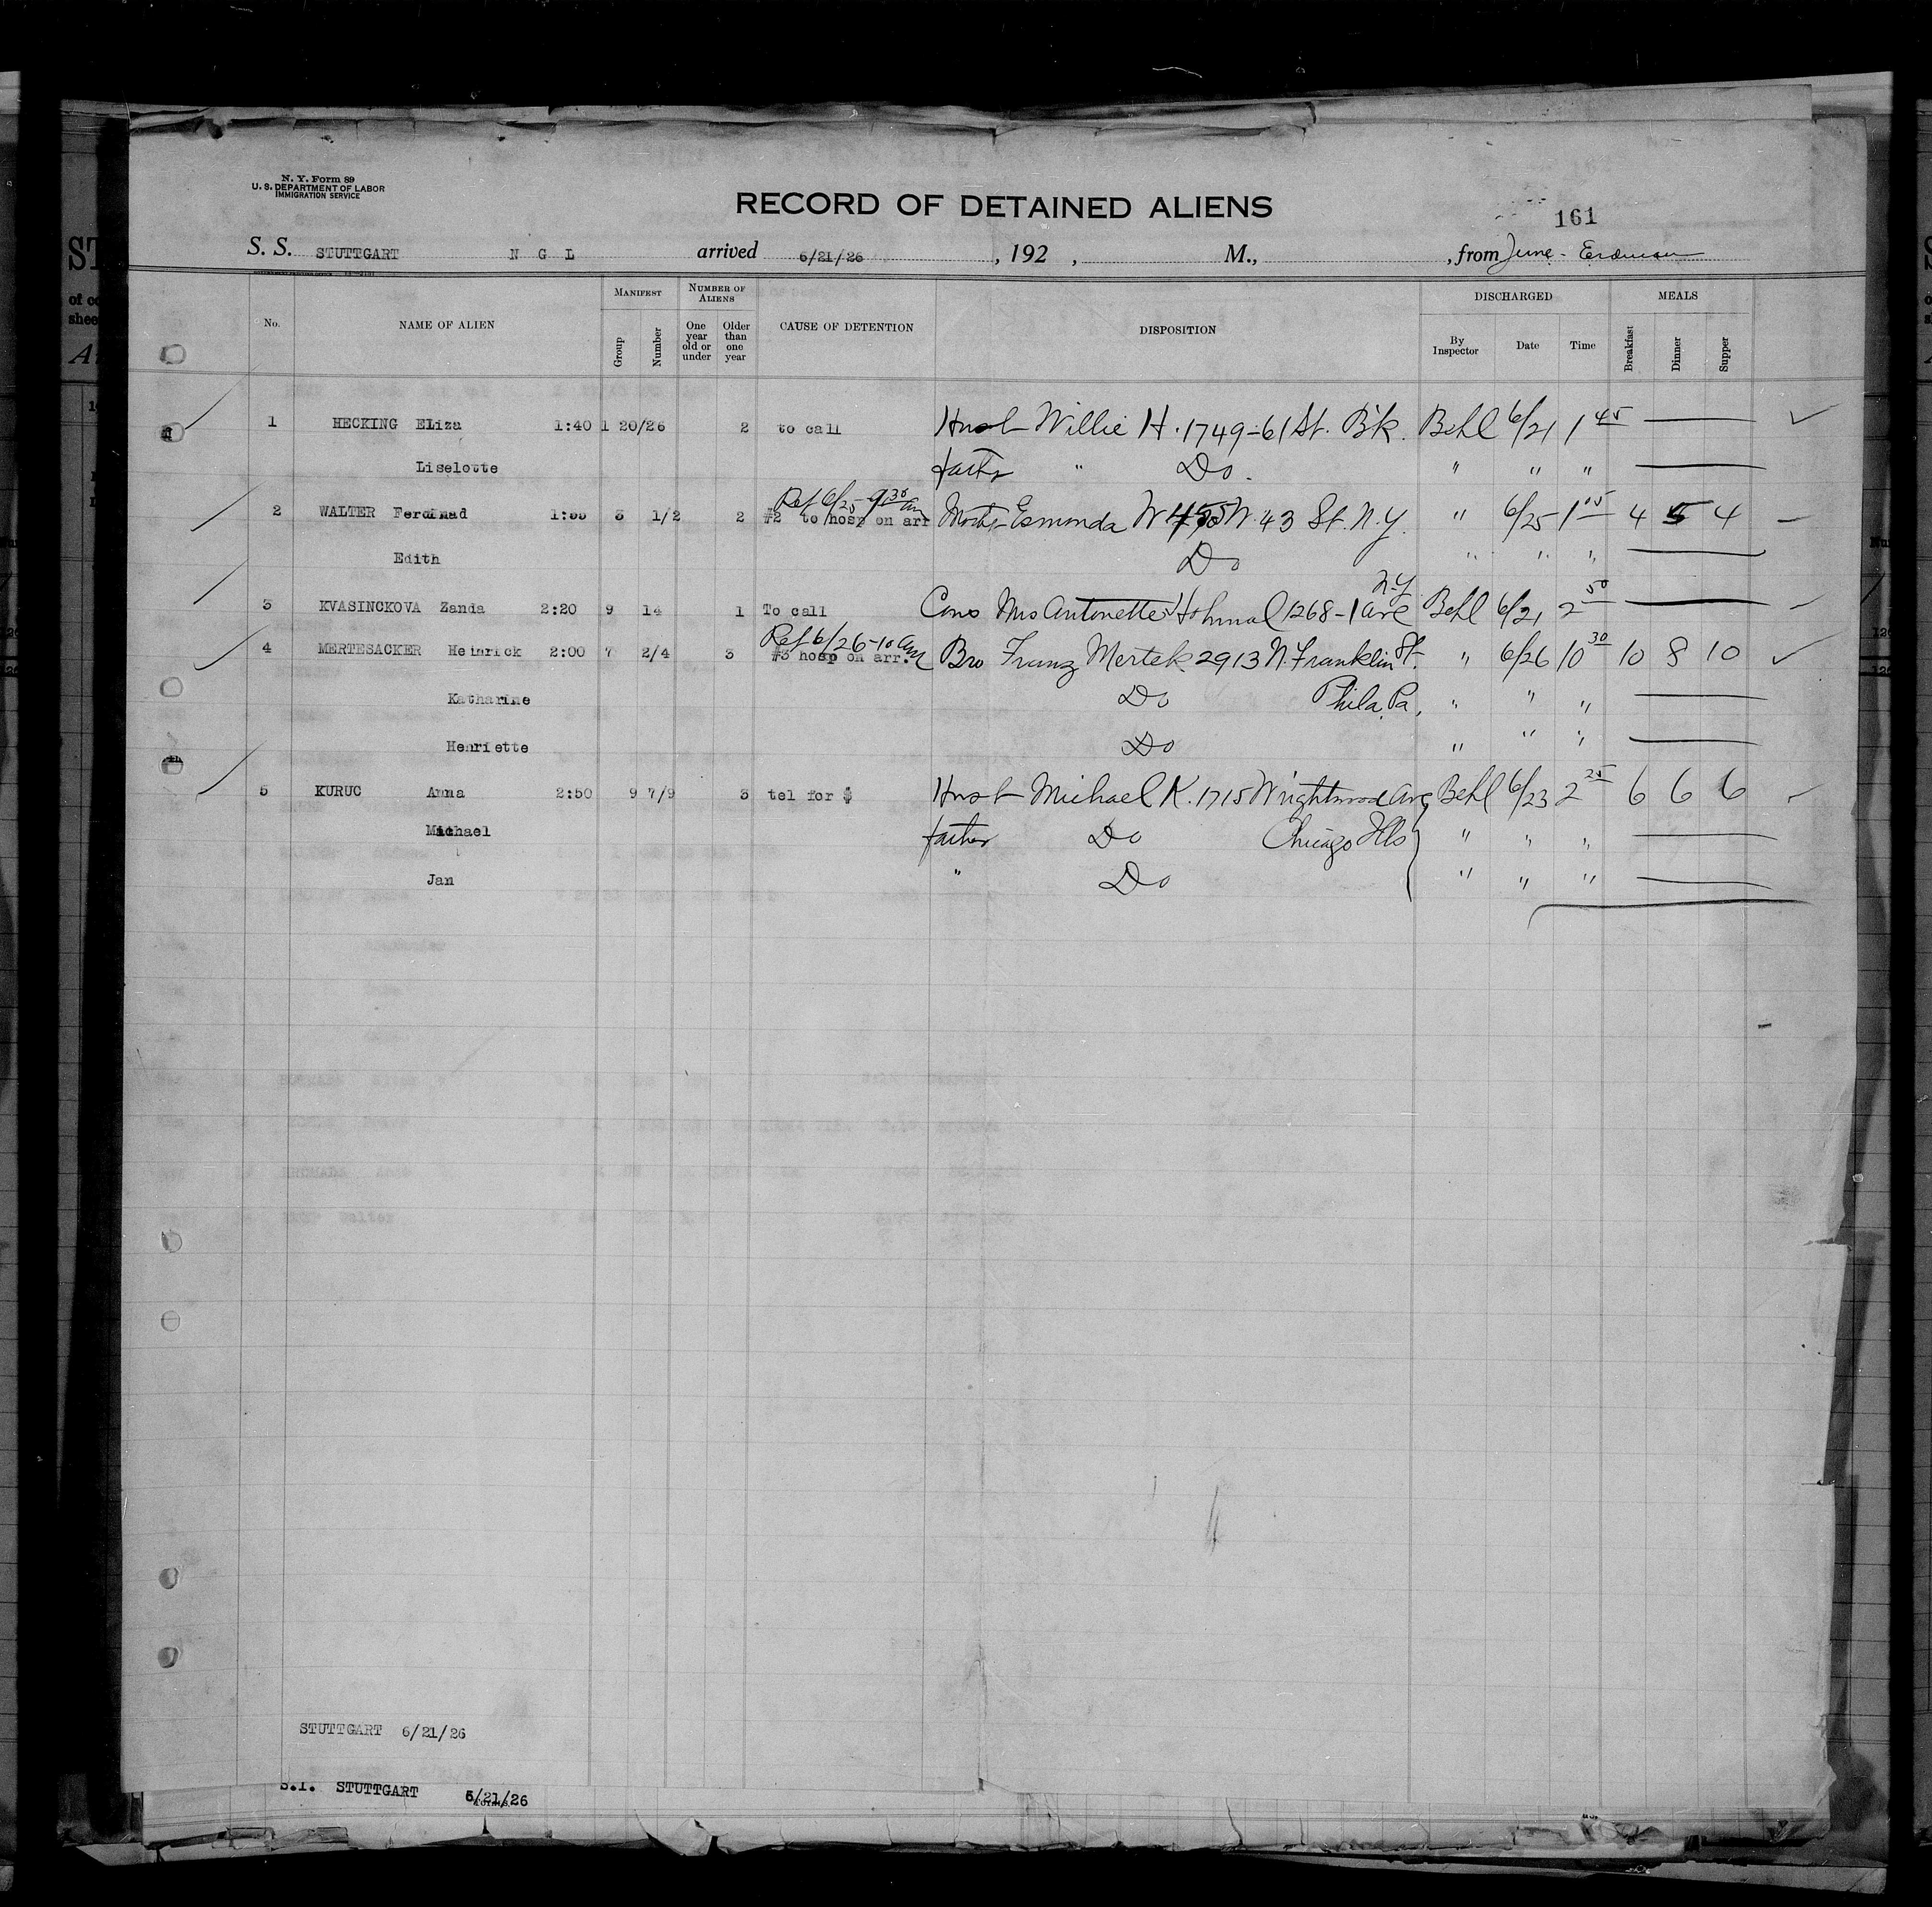 N. Y. Form 89
U. S. DEPARTMENT OF LABOR
IMMIGRATION SERVICE
RECORD OF DETAINED ALIENS
161
S. S. STUTTGART N G L arrived 6/21/26, 192 , M., , from June - Erdman
No. NAME OF ALIEN MANIFEST Group Number NUMBER OF ALIENS One year old or under Older than one year CAUSE OF DETENTION DISPOSITION DISCHARGED By Inspector Date Time MEALS Breakfast Dinner Supper
1 HECKING Eliza 1:40 1 20/26 2 to call Husb Willie H. 1749-61 St. B'k. Behl 6/21 1 45
Liselotte father " Do. " " "
Ref 6/25-9 30 am
2 WALTER Ferdinad 3 1/2 2 #2 to hosp on arr Moth Esmonda W W. 43 St. N.Y. " 6/25 1 05 4 5 4
Edith Do " " "
N.Y.
3 KVASINCKOVA Zanda 2:20 9 14 1 To call Cons Mrs Antonette 1268-1 Ave Behl 6/21 2 50
Ref 6/26-10 am
4 MERTESACKER Heinrick 2:00 7 2/4 3 #3 hosp on arr. Bro Franz Mertek 2913 N. Franklin St. " 6/26 10 30 10 8 10
Katharine Do Phila. Pa. " " "
Henriette Do " " "
5 KURUC Anna 2:50 9 7/9 3 tel for $ Husb Michael K. 1715 Wrightwood Ave Behl 6/23 2 25 6 6 6
Michael father Do Chicago Ills " " "
Jan " Do " " "
STUTTGART 6/21/26
S.I. STUTTGART 6/21/26